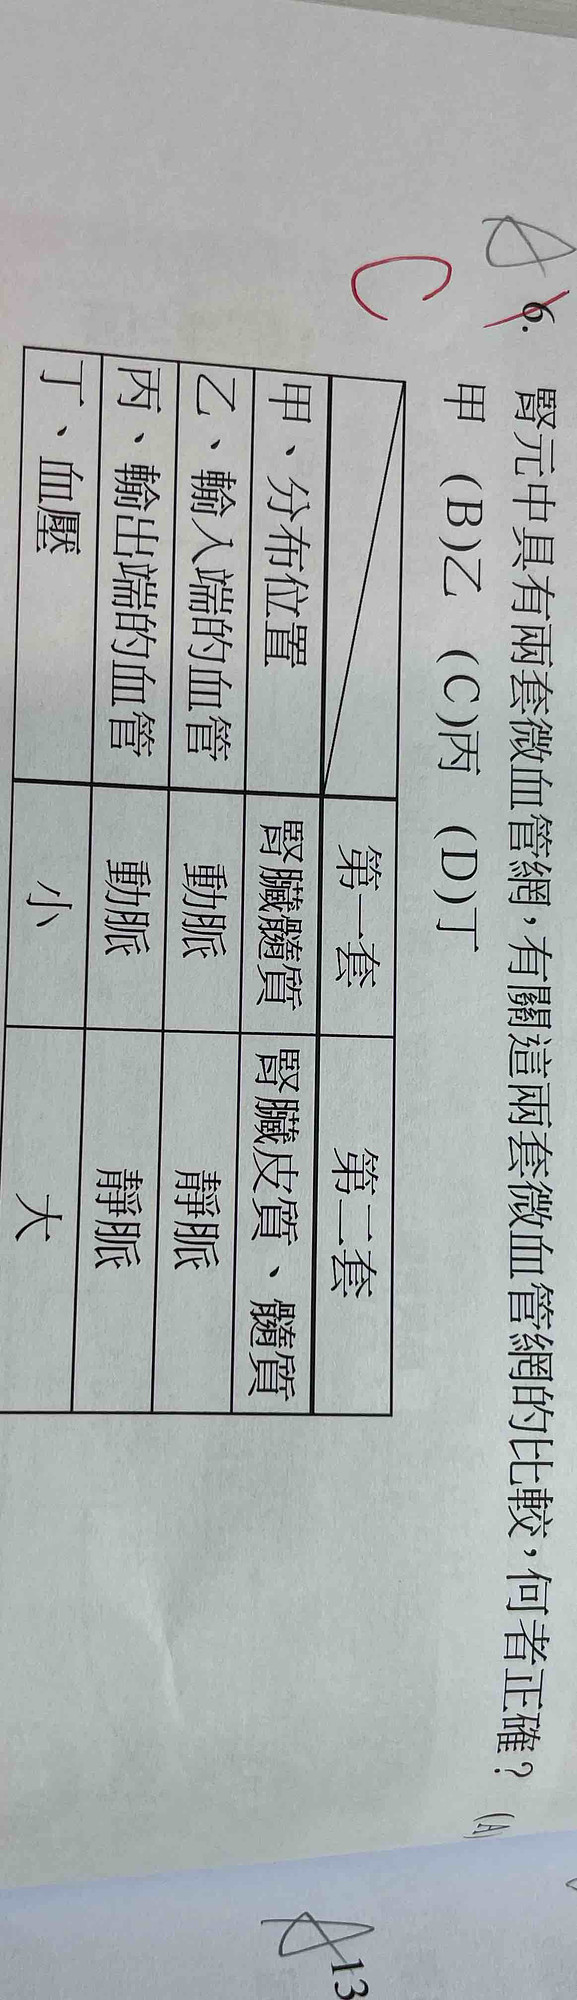 6. 腎元中具有兩套微血管網，有關這兩套微血管網的比較，何者正確？ (A)
甲 (B)乙 (C)丙 (D)丁
C
第一套 第二套
甲、分布位置 腎臟髓質 腎臟皮質、髓質
乙、輸入端的血管 動脈 靜脈
丙、輸出端的血管 動脈 靜脈
丁、血壓 小 大
13